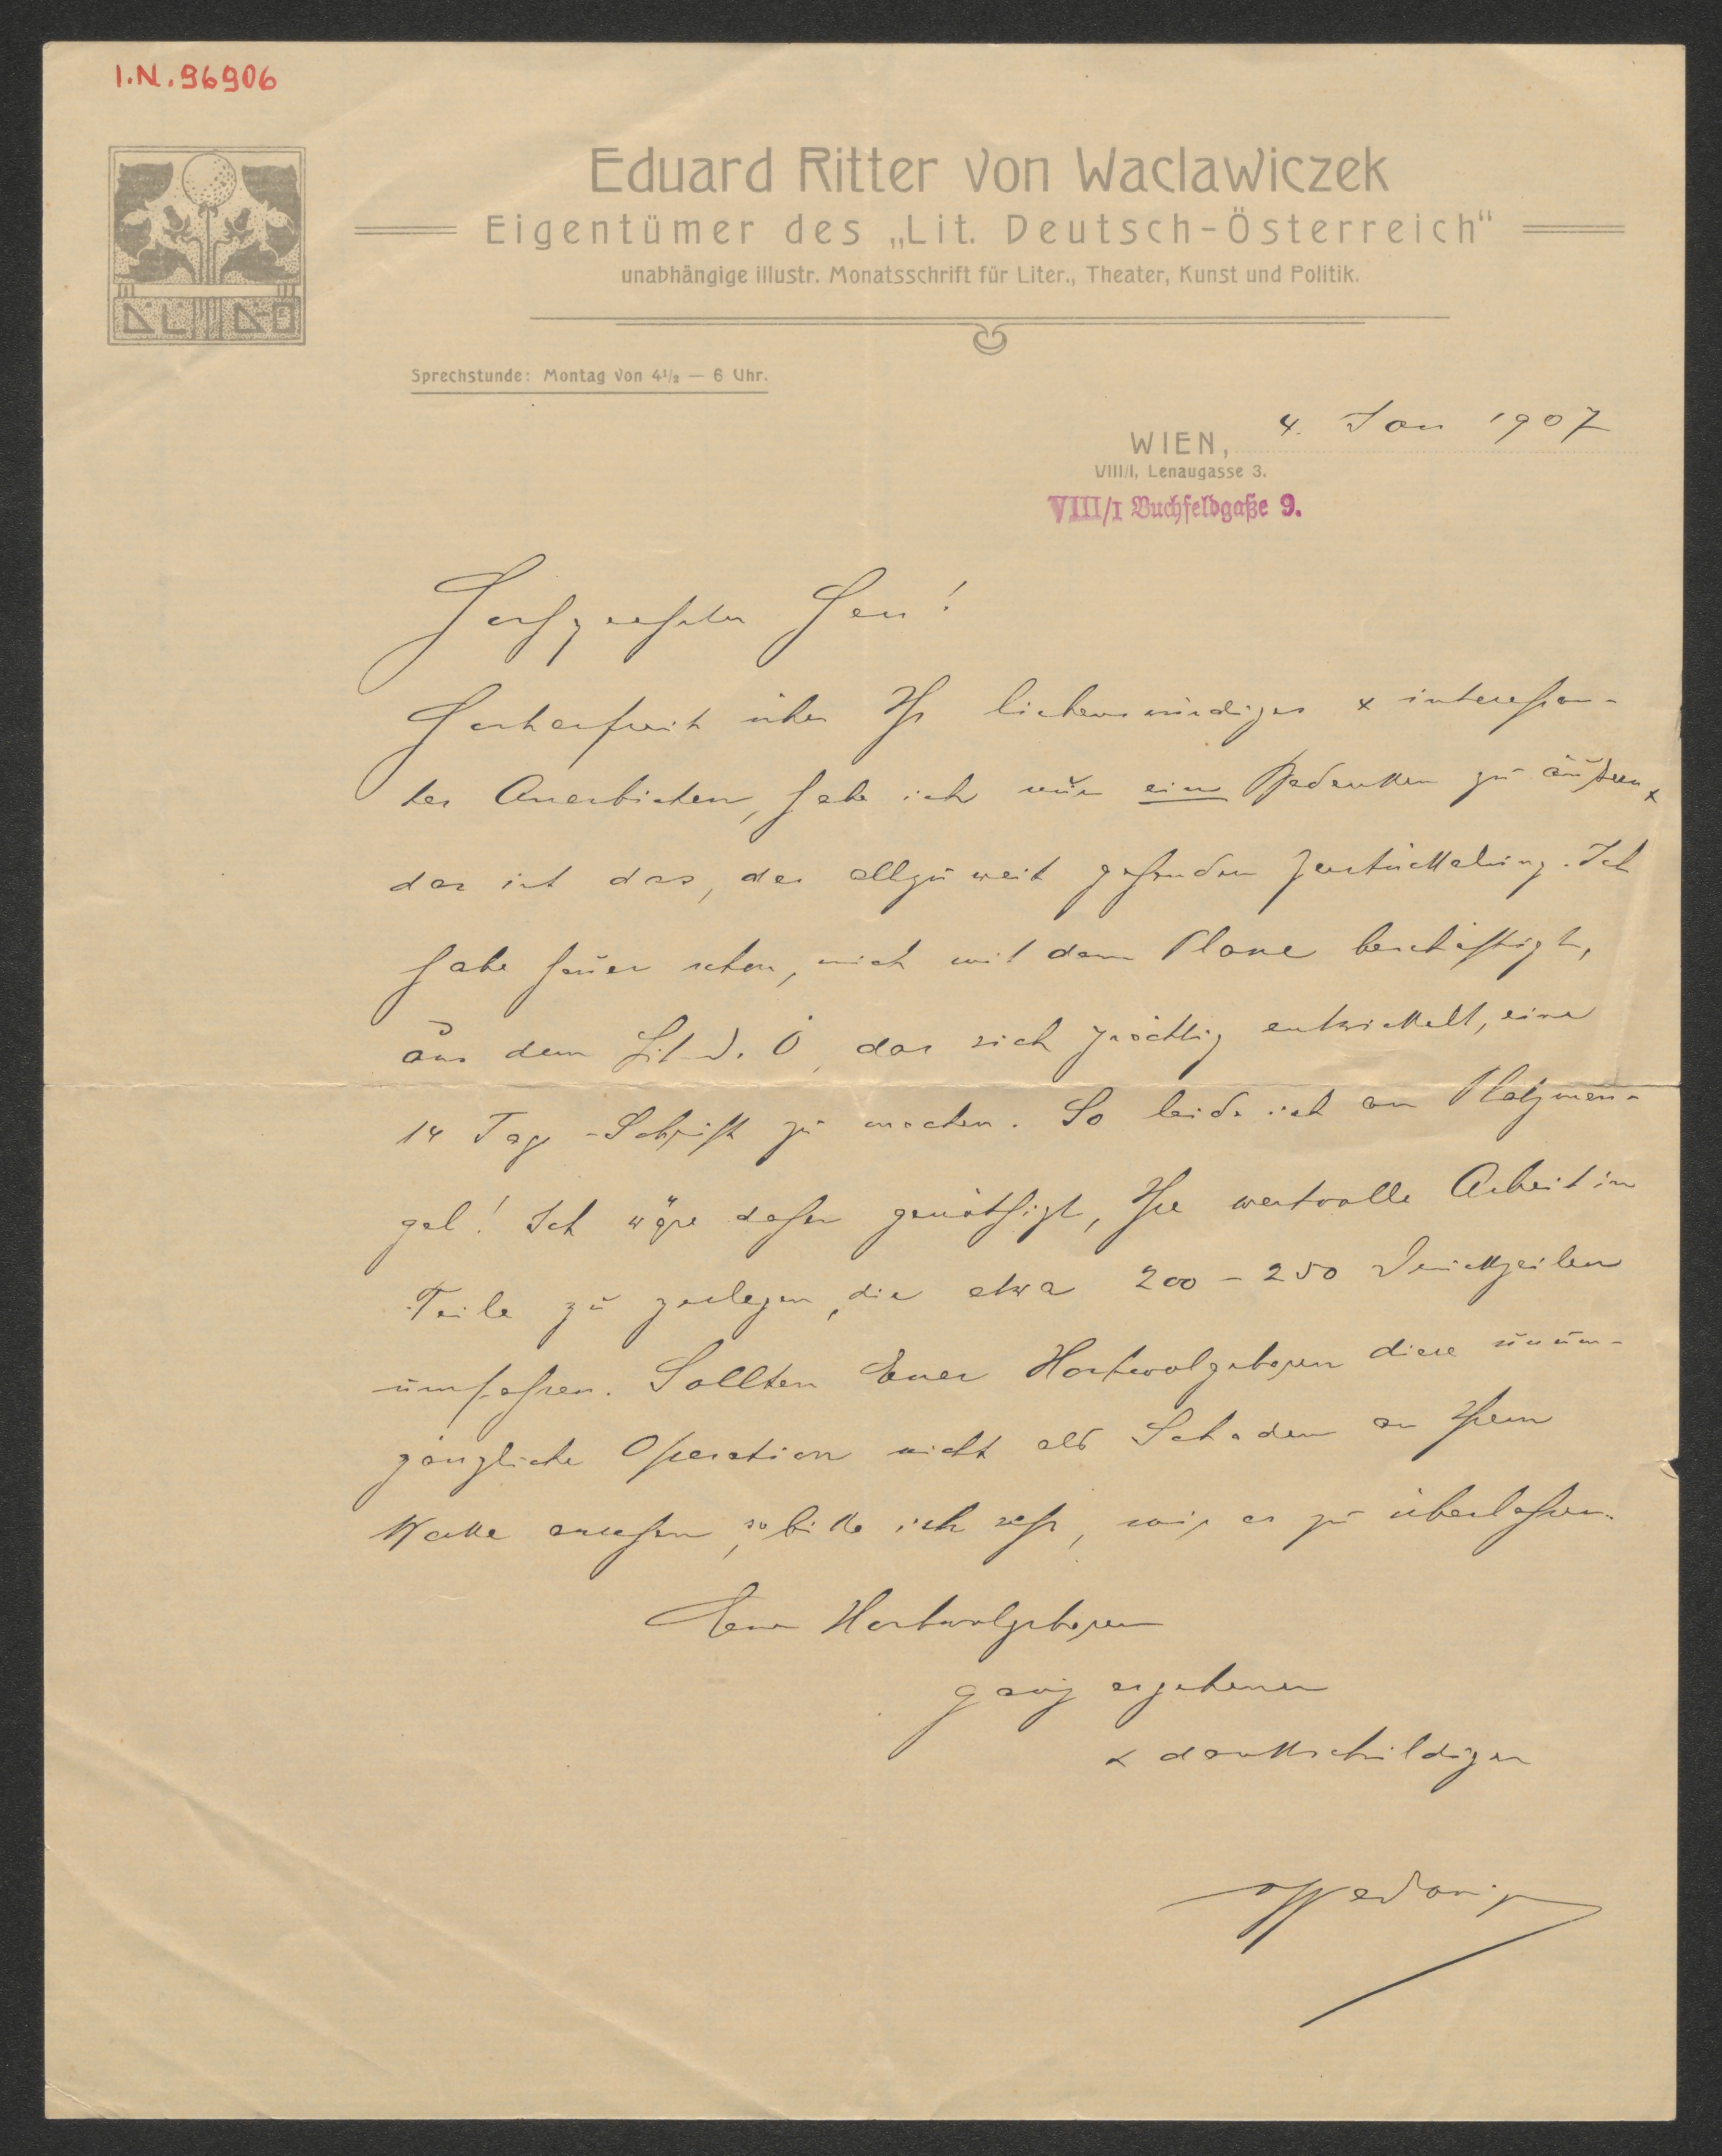 I.N.96906
Eduard Ritter von Waclawiczek
Eigentümer des „Lit. Deutsch-Österreich“
unabhängige illustr. Monatsschrift für Liter., Theater, Kunst und Politik.
DL DÖ
Sprechstunde: Montag von 4½ — 6 Uhr.
WIEN, 4. Jan 1907
VIII/I, Lenaugasse 3.
VIII/I Buchfeldgaße 9.
Hochgeehrter Herr!
Hocherfreut über Ihr liebenswürdiges & interessan-
tes Anerbieten, habe ich nur ein Bedenken zu äußern &
das ist das, der allzuweit gehenden Zerstückelung. Ich
habe heuer schon, mich mit dem Plane beschäftigt,
aus dem Lit. D. Ö, das sich prächtig entwickelt, eine
14 Tag-Schrift zu machen. So leide ich an Platzman-
gel! Ich wäre daher genöthigt, Ihre wertvolle Arbeit in
Teile zu zerlegen, die etwa 200 - 250 Druckzeilen
umfassen. Sollten Euer Hochwolgeboren diese unum-
gängliche Operation nicht als Schaden an Ihrem
Werke ansehen, so bitte ich sehr, mir es zu überlassen.
Euer Hochwolgeboren
ganz ergebener
& dankschuldiger